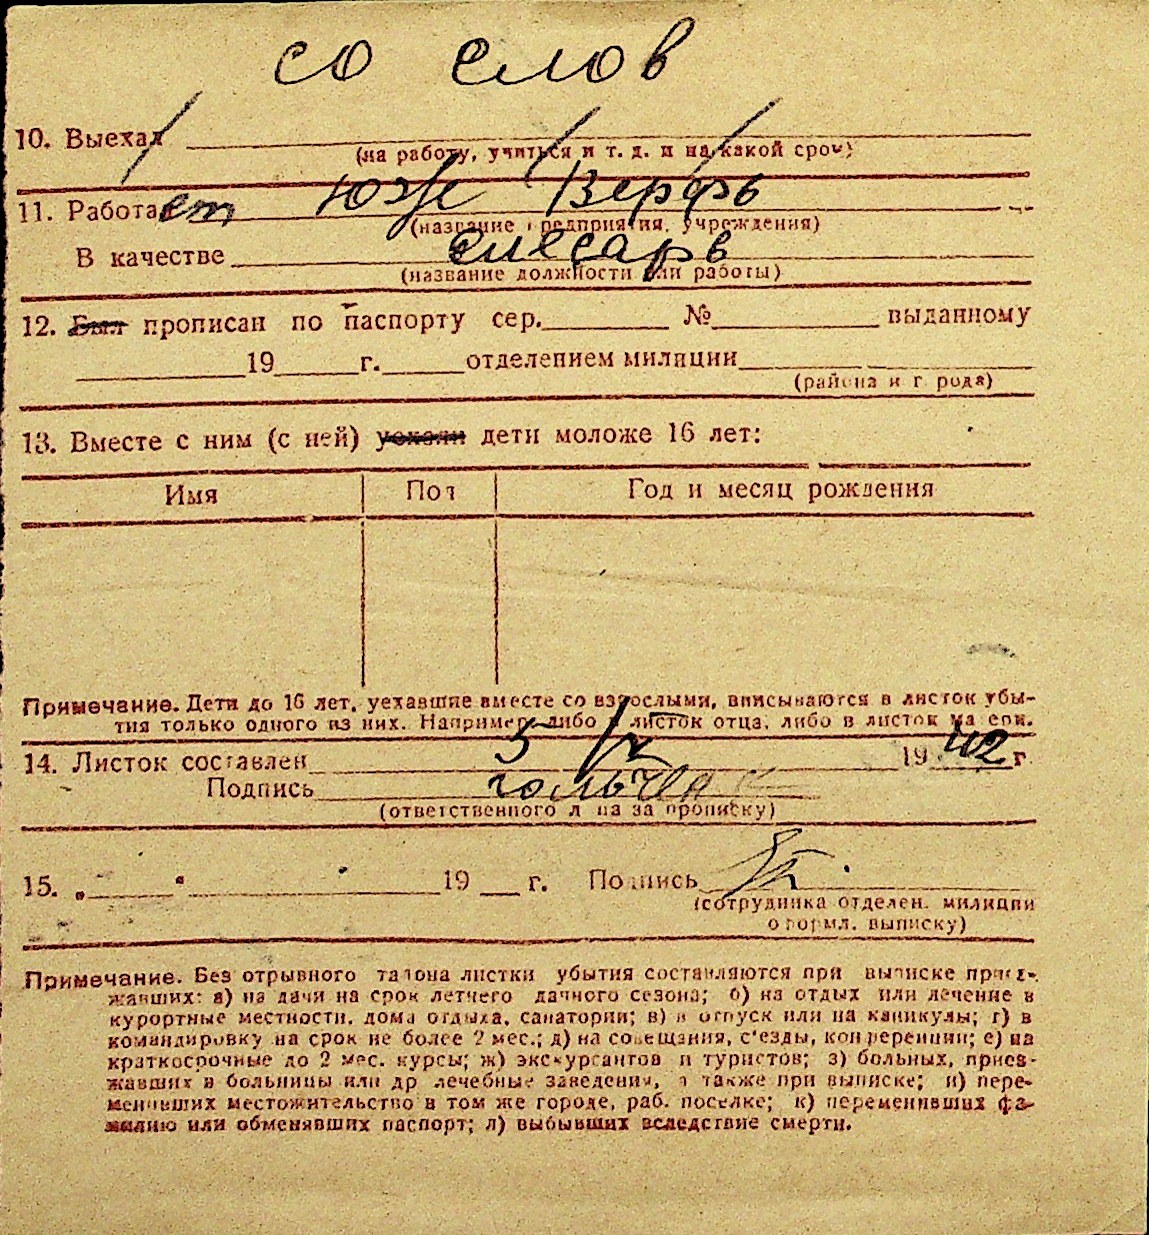 со слов
10. Выехал
(на работу, учиться и т. д. и на какой срок)
11. Работает Юж Верфь
(название предприятия, учреждения)
В качестве слесарь
(название должности или работы)
12. Был прописан по паспорту сер. № выданному
19 г. отделением милиции
(района и города)
13. Вместе с ним (с ней) уехали дети моложе 16 лет:
Имя Пол Год и месяц рождения
Примечание. Дети до 16 лет, уехавшие вместе со взрослыми, вписываются в листок убы-
тия только одного из них. Например, либо в листок отца, либо в листок матери.
14. Листок составлен 5/V 1942 г.
Подпись
(ответственного лица за прописку)
15. „ “ 19 г. Подпись
(сотрудника отделен. милиции
оформл. выписку)
Примечание. Без отрывного талона листки убытия составляются при выписке приез-
жавших: а) на дачи на срок летнего дачного сезона; б) на отдых или лечение в
курортные местности, дома отдыха, санатории; в) в отпуск или на каникулы; г) в
командировку на срок не более 2 мес.; д) на совещания, с'езды, конференции; е) на
краткосрочные до 2 мес. курсы; ж) экскурсантов и туристов; з) больных, приез-
жавших в больницы или др лечебные заведения, а также при выписке; и) пере-
менивших местожительство в том же городе, раб. поселке; к) переменивших фа-
милию или обменявших паспорт; л) выбывших вследствие смерти.